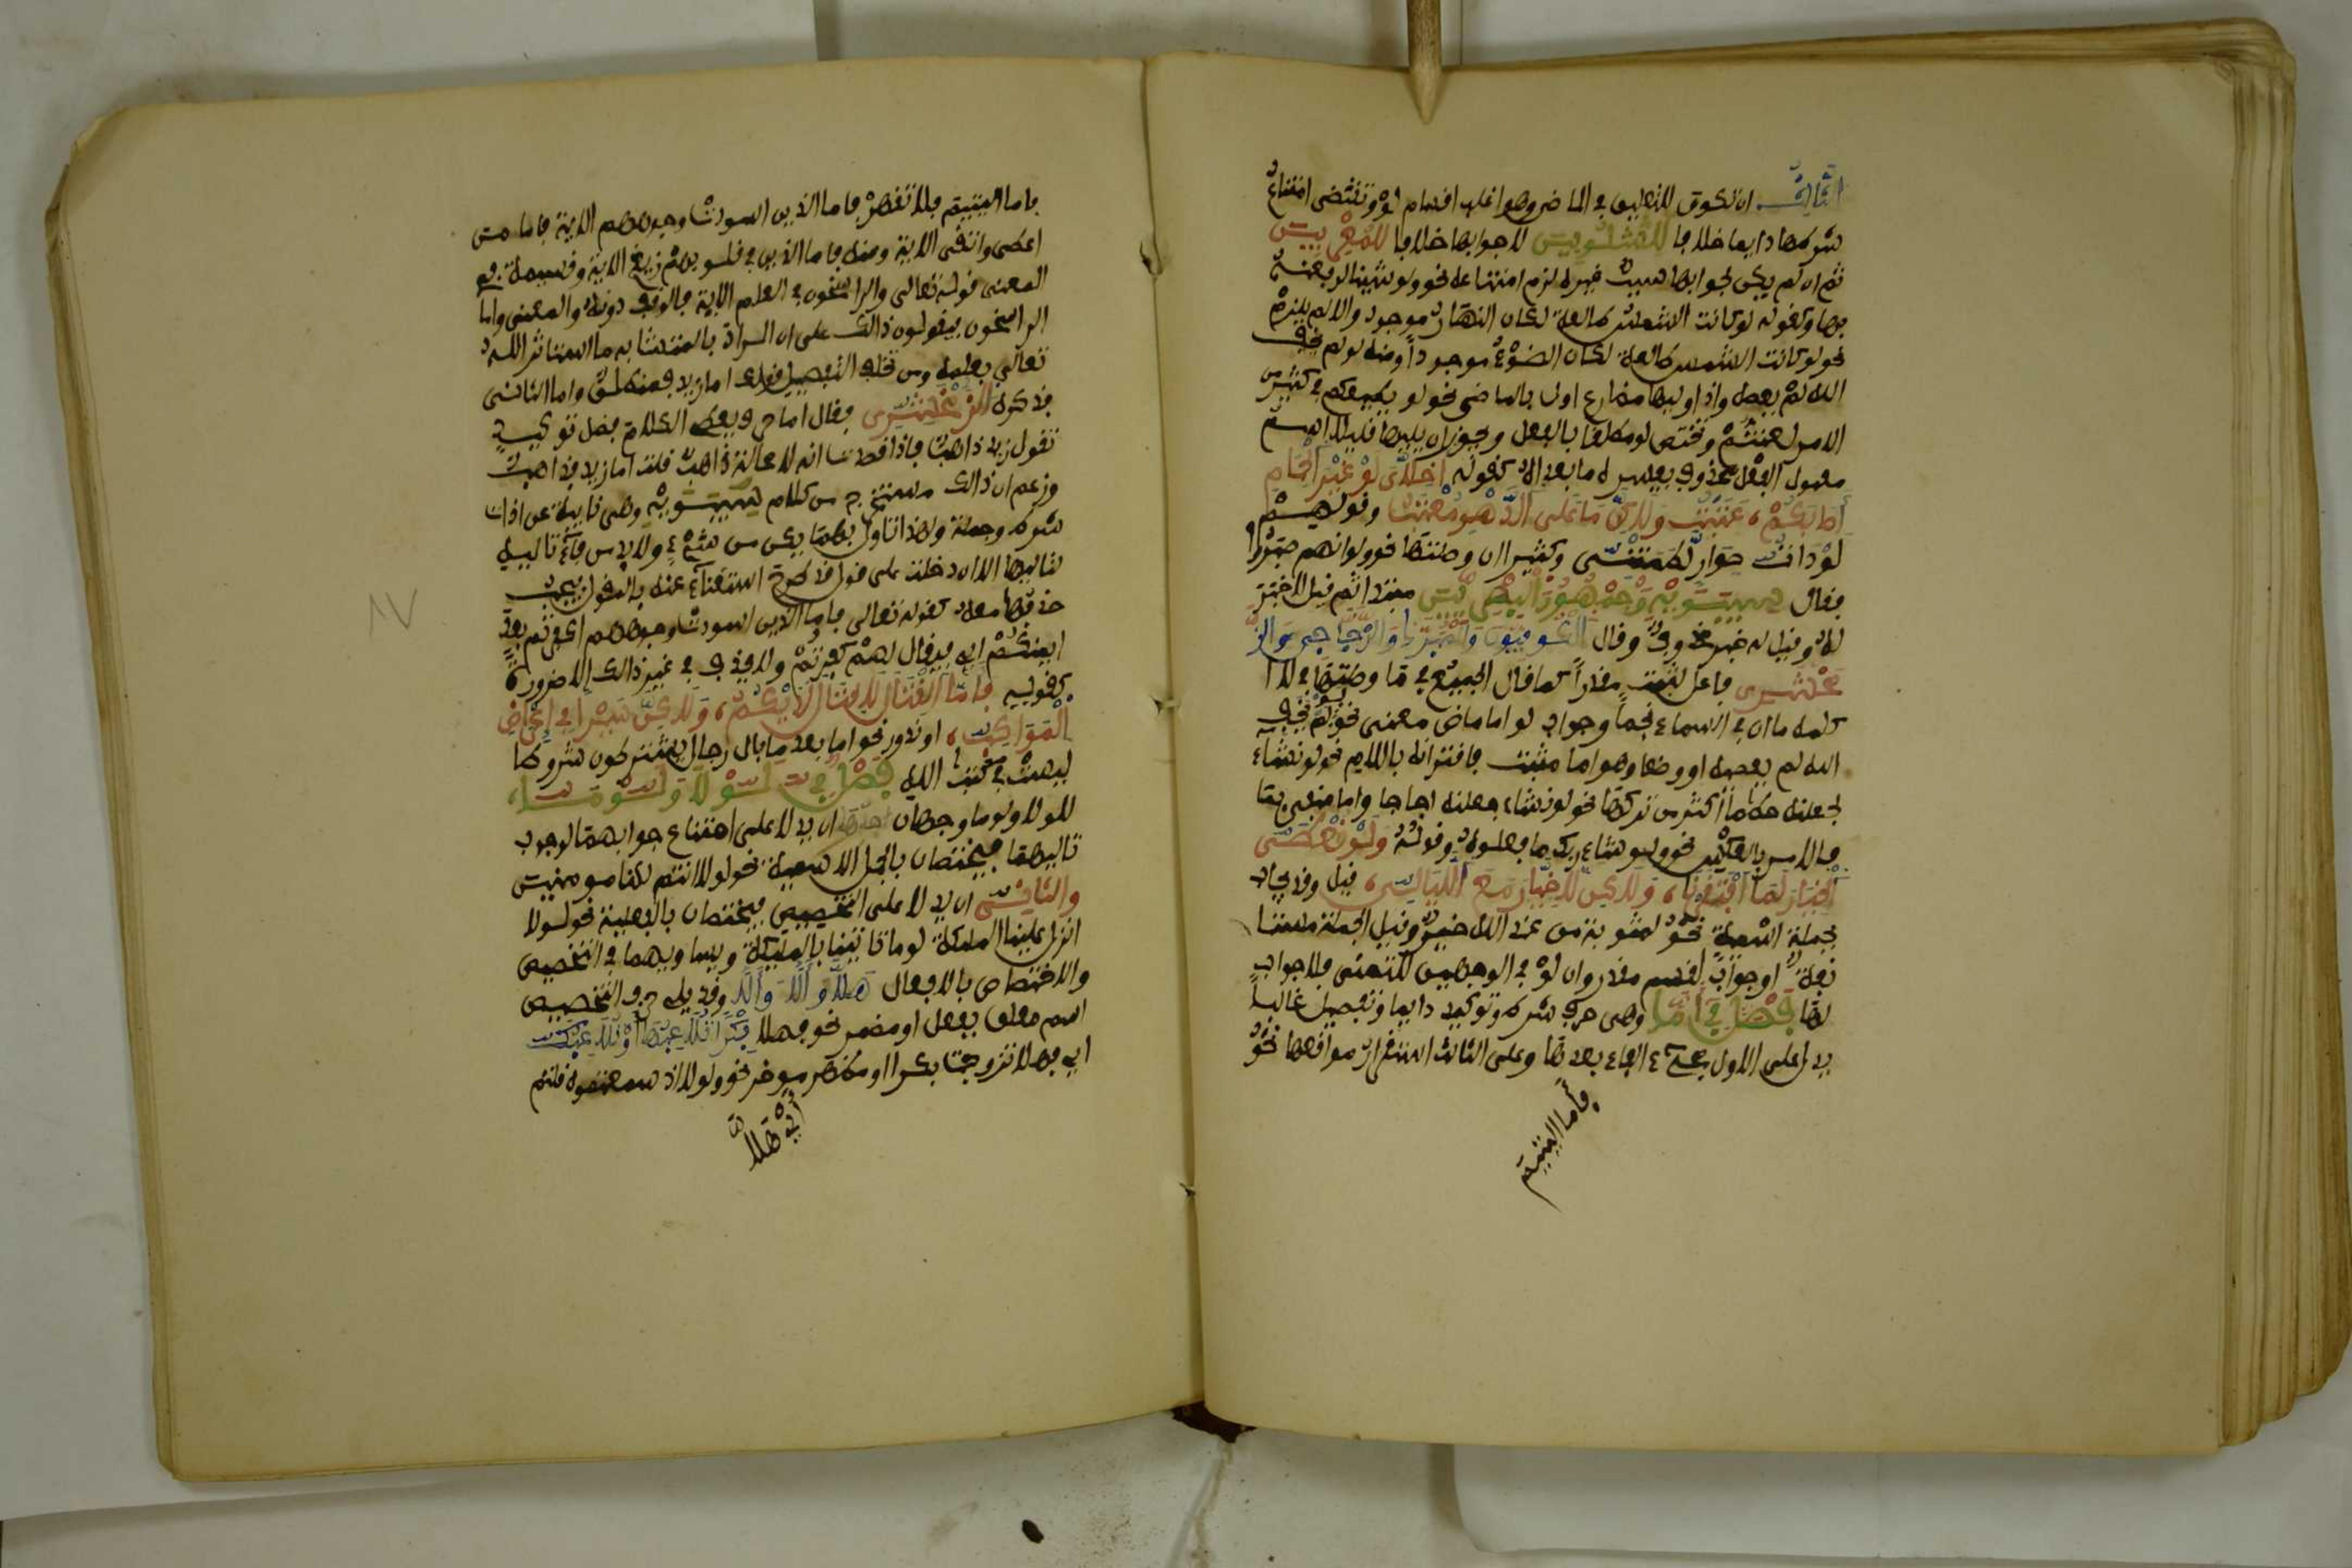 الثالث ان تكون للتعليق في الماضي وهو اغلب اقسام لو وتقتضي امتناع
شرطها دايما خلافا للشلوبين لا جوابها خلافا للمعربين
ثم ان لم يكن لجوابها سبب غيره لزم امتناعه نحو ولو شئنا لرفعنه
بها وكقوله لو كانت الشمس طالعة لكان النهار موجود والا لم يلزم
نحو لو كانت الشمس طالعة لكان الضوء موجودا ومنه لو لم يخف
الله لم يعصه واذا وليها مضارع اول بالماضي نحو لو يطيعكم في كثير من
الامر لعنتم وتختص لو مطلقا بالفعل ويجوز ان يليها قليلا اسم
معمول لفعل محذوف يفسره ما بعده كقوله اخلاي لو غير الحمام
اصابكم، عتبت ولكن ما على الدهر معتب وقولهم
لو ذات سوار لطمتني وكثيرا ان وصلتها نحو ولو انهم صبروا
فقال سيبويه وجمهور البصريين مبتدا ثم قيل لا خبر
له وقيل له خبر محذوف وقال الكوفيون والمبرد والزجاج والز
مخشري فاعل لثبت مقدرا كما قال الجميع في ما وصلتها في لا ا
كلمه ما ان في السماء نجما وجواب لو اما ماض معنى نحو لو لم يخف
الله لم يعصه او وضعا وهو اما مثبت فاقترانه باللام نحو لو نشاء
لجعلنه حطاما أكثر من تركها نحو لو نشاء جعلنه اجاجا واما منفي بما
فالامر بالعكس نحو ولو شاء ربك ما فعلوه وقوله ولو نعطى
الخيار لما افترقنا، ولكن لا خيار مع الليالي، قيل وقد يجاب
بجملة اسمية نحو لمثوبة من عند الله خير وقيل الجملة مستا
نفة او جواب لقسم مقدر وان لو في الوجهين للتمني فلا جواب
لها فصل في أما وهي حرف شرط وتوكيد دايما وتفصيل غالبا
يدل على الاول مجيء الفاء بعدها وعلى الثالث استقراء مواقعها نحو
فأما اليتيم
فاما اليتيم فلا تقهر فاما الذين اسودت وجوههم الاية فاما من
اعطى واتقى الاية ومنه فاما الذين في قلوبهم زيغ الاية وقسيمه في
المعنى قوله تعالى والراسخون في العلم الاية فالوقف دونه والمعنى واما
الراسخون فيقولون ذالك على ان المراد بالمتشابه ما استاثر الله
تعالى بعلمه ومن تخلف التفصيل قولك اما زيد فمنطلق واما الثاني
فذكره الزمخشري فقال اما حرف يعطي الكلام فضل توكيد
تقول زيد ذاهب فاذا قصدت انه لا محالة ذاهب قلت اما زيد فذاهب
وزعم ان ذالك مستخرج من كلام سيبويه وهي نايبة عن اداة
شرط وجملة ولهذا تاول بمهما يكن من شيء ولا بد من فاء تالية
لتاليها الا ان دخلت على قول قد طرح استغناء عنه بالمقول فيجب
حذفها معه كقوله تعالى فاما الذين اسودت وجوههم اكفرتم بعد
ايمنكم اي فيقال لهم اكفرتم ولا تحذف في غير ذالك الا ضرورة
كقوله فاما القتال لا قتال لديكم، ولكن سيرا في اعراض
المواكب، او ندور نحو اما بعد ما بال رجال يشترطون شروطا
ليست في كتب الله فصل في لولا ولوما،
للولا ولوما وجهان احدهما ان يدلا على امتناع جوابهما لوجوب
تاليهما فيختصان بالجمل الاسمية نحو لولا انتم لكنا مومنين
والثاني ان يدلا على التحضيض فيختصان بالفعلية نحو لولا
انزل علينا الملئكة لوما تاتينا بالملئكة ويساويهما في التحضيض
والاختصاص بالافعال هلا وألا وألا وقد يلي حرف التحضيض
اسم معلق بفعل او مضمر نحو فهلا بكرا تلاعبها وتلاعبك
اي فهلا تزوجت بكرا او مظهر موخر نحو ولولا اذ سمعتموه قلتم
أي هلا